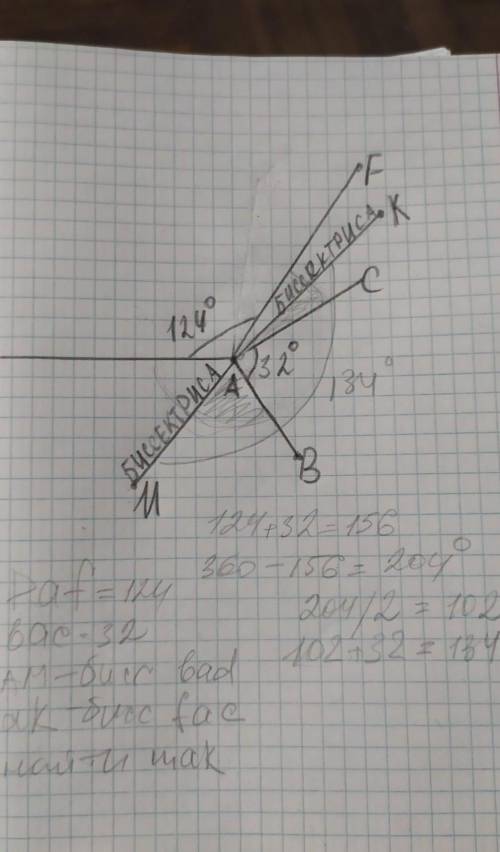 F
K
БИССЕКТРИСА
C
124°
32°
A
134°
БИССЕКТРИСА
B
M
124+32=156
360-156=204°
204/2=102
102+32=134
af=124
bac-32
ам-бисс bad
ak-бисс fac
найти mak